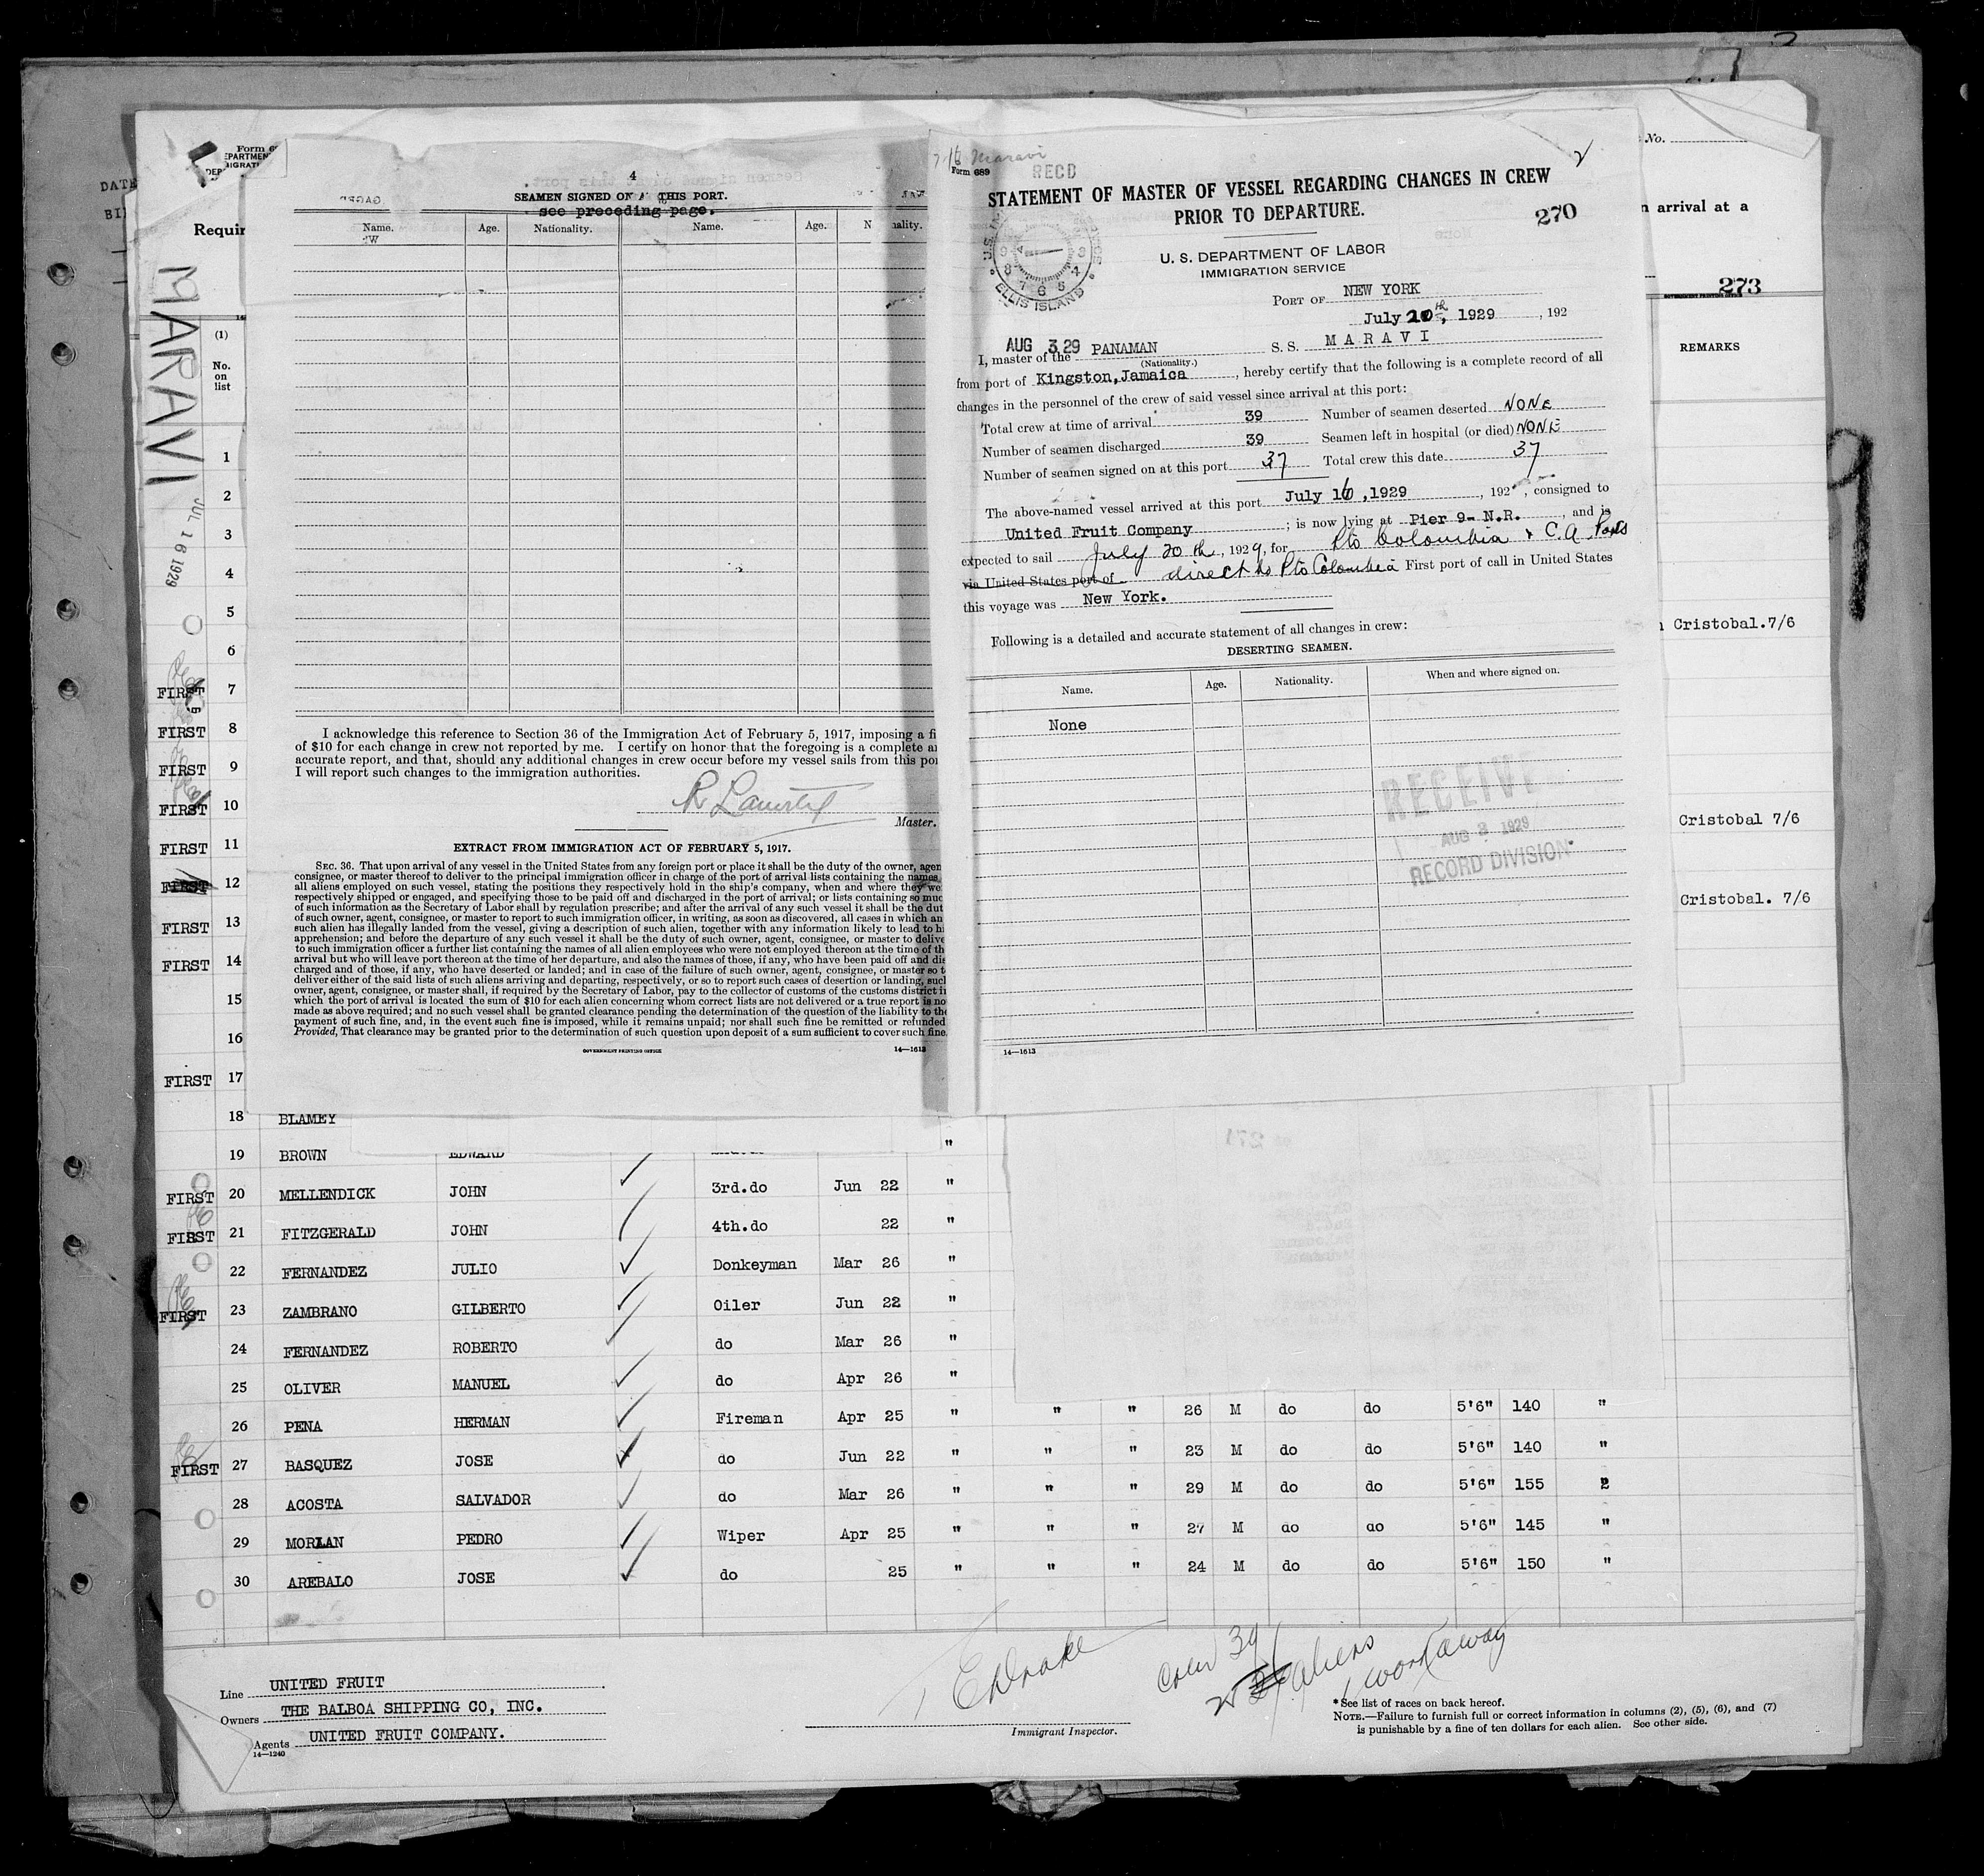 4
SEAMEN SIGNED ON AT THIS PORT.
see preceding page.
Name. Age. Nationality. Name. Age.
I acknowledge this reference to Section 36 of the Immigration Act of February 5, 1917, imposing a
of $10 for each change in crew not reported by me. I certify on honor that the foregoing is a complete
accurate report, and that, should any additional changes in crew occur before my vessel sails from this
I will report such changes to the immigration authorities.
Master.
EXTRACT FROM IMMIGRATION ACT OF FEBRUARY 5, 1917.
SEC. 36. That upon arrival of any vessel in the United States from any foreign port or place it shall be the duty of the owner,
consignee, or master thereof to deliver to the principal immigration officer in charge of the port of arrival lists containing the names
all aliens employed on such vessel, stating the positions they respectively hold in the ship's company, when and where they
respectively shipped or engaged, and specifying those to be paid off and discharged in the port of arrival; or lists containing so
of such information as the Secretary of Labor shall by regulation prescribe; and after the arrival of any such vessel it shall be the
of such owner, agent, consignee, or master to report to such immigration officer, in writing, as soon as discovered, all cases in which
such alien has illegally landed from the vessel, giving a description of such alien, together with any information likely to lead to
apprehension; and before the departure of any such vessel it shall be the duty of such owner, agent, consignee, or master to
to such immigration officer a further list containing the names of all alien employees who were not employed thereon at the time of
arrival but who will leave port thereon at the time of her departure, and also the names of those, if any, who have been paid off and
charged and of those, if any, who have deserted or landed; and in case of the failure of such owner, agent, consignee, or master so
deliver either of the said lists of such aliens arriving and departing, respectively, or so to report such cases of desertion or landing,
owner, agent, consignee, or master shall, if required by the Secretary of Labor, pay to the collector of customs of the customs district
which the port of arrival is located the sum of $10 for each alien concerning whom correct lists are not delivered or a true report is
made as above required; and no such vessel shall be granted clearance pending the determination of the question of the liability to
payment of such fine, and, in the event such fine is imposed, while it remains unpaid; nor shall such fine be remitted or refunded
Provided, That clearance may be granted prior to the determination of such question upon deposit of a sum sufficient to cover such fine
GOVERNMENT PRINTING OFFICE 14—1613
7-16 Maravi
Form 689
RECD
STATEMENT OF MASTER OF VESSEL REGARDING CHANGES IN CREW
PRIOR TO DEPARTURE.
270
U. S. DEPARTMENT OF LABOR
IMMIGRATION SERVICE
ELLIS ISLAND
PORT OF NEW YORK
July 20th, 1929, 192
AUG 3 29
I, master of the PANAMAN S. S. MARAVI
(Nationality.)
from port of Kingston, Jamaica, hereby certify that the following is a complete record of all
changes in the personnel of the crew of said vessel since arrival at this port:
Total crew at time of arrival 39 Number of seamen deserted NONE
Number of seamen discharged 39 Seamen left in hospital (or died) NONE
Number of seamen signed on at this port 37 Total crew this date 37
The above-named vessel arrived at this port July 16, 1929, 192 , consigned to
United Fruit Company; is now lying at Pier 9- N.R., and is
expected to sail July 20th, 1929, for Pto Colombia & C.A. Ports
via United States port of direct to Pto Colombia First port of call in United States
this voyage was New York.
Following is a detailed and accurate statement of all changes in crew:
DESERTING SEAMEN.
Name. Age. Nationality. When and where signed on.
None
RECEIVE
AUG 3 1929
RECORD DIVISION
14—1613
MARAVI
JUL 16 1929
Requir
(1)
No.
on
list
No.
n arrival at a
273
REMARKS
1
2
3
4
5
Cristobal.7/6
6
FIRST 7
FIRST 8
FIRST 9
FIRST 10
Cristobal 7/6
FIRST 11
FIRST 12
Cristobal. 7/6
FIRST 13
FIRST 14
15
16
FIRST 17
18 BLAMEY
19 BROWN EDWARD "
FIRST 20 MELLENDICK JOHN 3rd.do Jun 22 "
FIRST 21 FITZGERALD JOHN 4th.do 22 "
22 FERNANDEZ JULIO Donkeyman Mar 26 "
FIRST 23 ZAMBRANO GILBERTO Oiler Jun 22 "
24 FERNANDEZ ROBERTO do Mar 26 "
25 OLIVER MANUEL do Apr 26 "
26 PENA HERMAN Fireman Apr 25 " " " 26 M do do 5'6" 140 "
FIRST 27 BASQUEZ JOSE do Jun 22 " " " 23 M do do 5'6" 140 "
28 ACOSTA SALVADOR do Mar 26 " " " 29 M do do 5'6" 155 "
29 MORLAN PEDRO Wiper Apr 25 " " " 27 M do do 5'6" 145 "
30 AREBALO JOSE do 25 " " " 24 M do do 5'6" 150 "
Line UNITED FRUIT
Owners THE BALBOA SHIPPING CO, INC.
Agents UNITED FRUIT COMPANY.
14—1240
E Drake
Immigrant Inspector.
Crew 39
aliens
1 workaway
*See list of races on back hereof.
NOTE.—Failure to furnish full or correct information in columns (2), (5), (6), and (7)
is punishable by a fine of ten dollars for each alien. See other side.